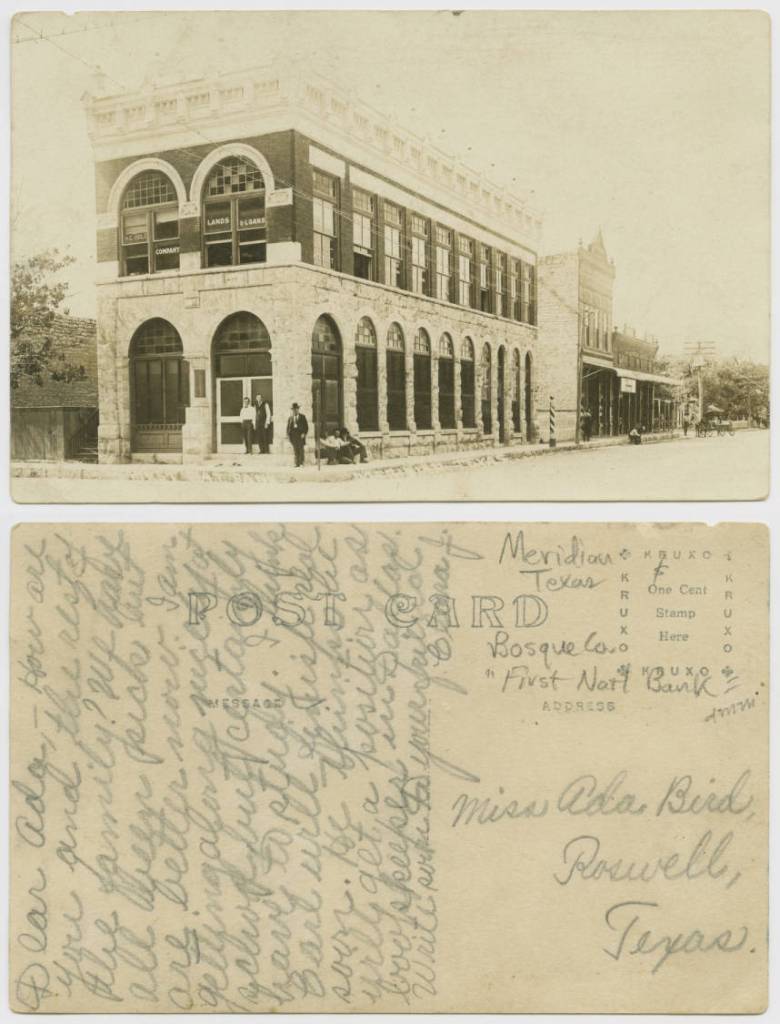 COMPANY
LANDS & LOANS
POST CARD
MESSAGE
ADDRESS
KRUXO
KRUXO
One Cent
Stamp
Here
KRUXO
KRUXO
Meridian
Texas
Bosque Co.
"First Nat'l Bank"
Miss Ada Bird,
Roswell,
Texas.
Dear Ada,- How are
you and the rest of
the family? We have
all been sick but
are better now. I am
getting along nicely at
school but certainly
have to study. I think
Carl will finish real
soon. He thinks he
will get a position as
bookkeeper in Dallas.
Write soon to your friend
Clara J.